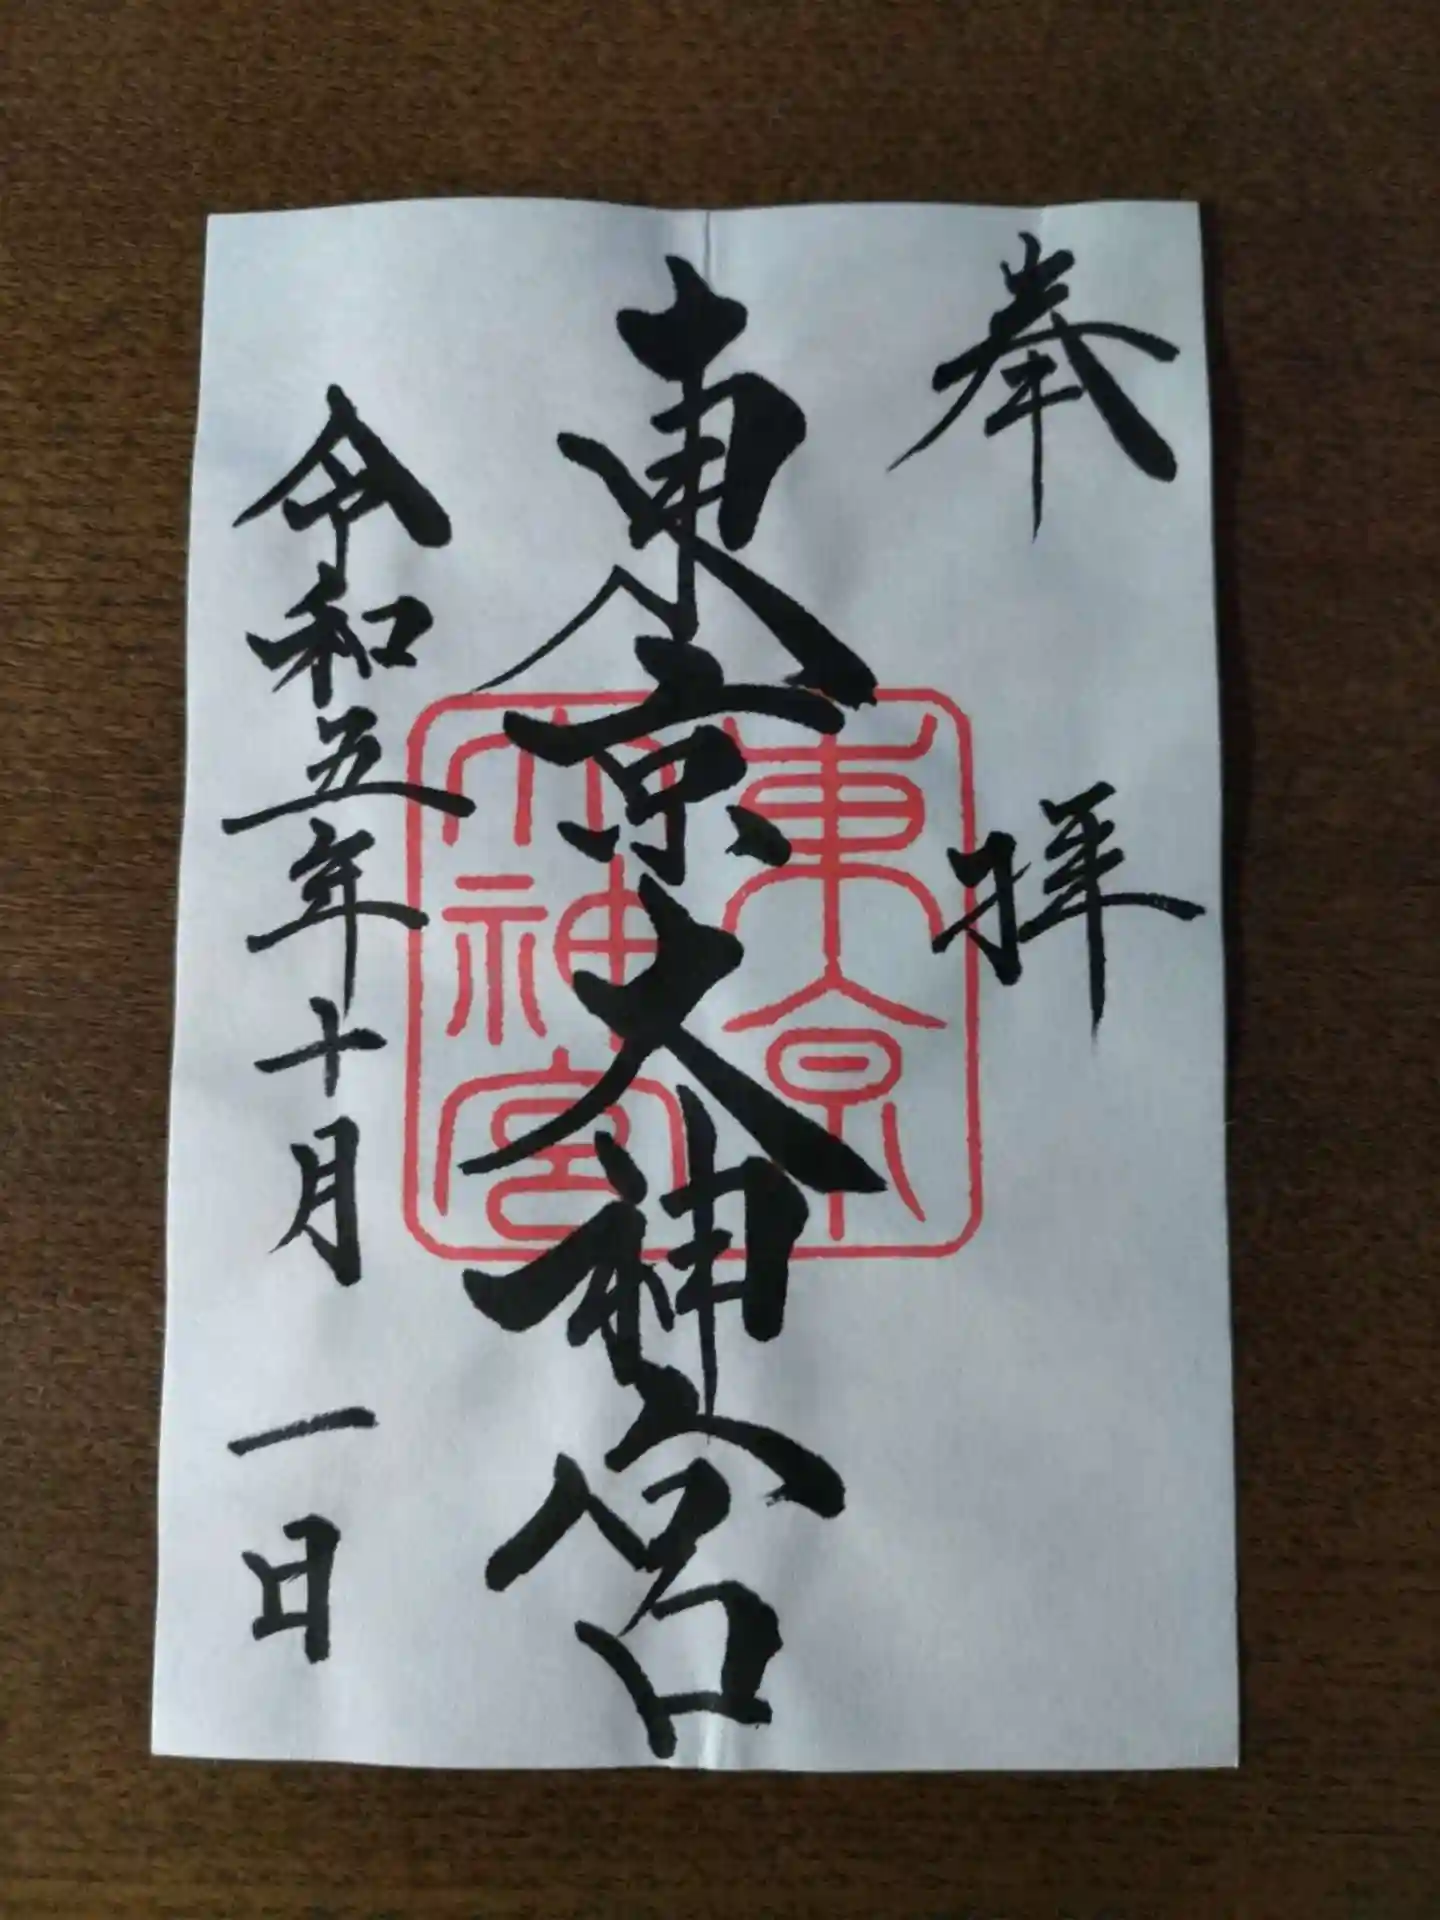 奉拝
東京大神宮
令和五年十月一日
東京
大神宮